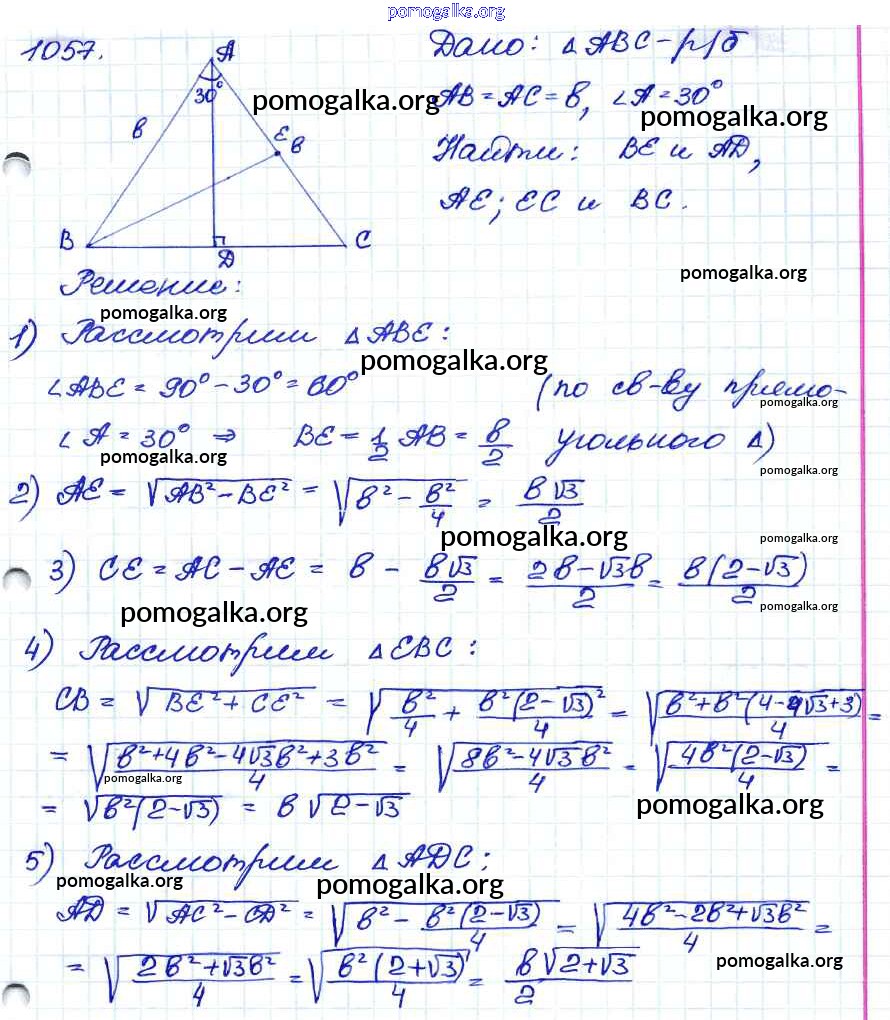 pomogalka.org
1057.
A
30°
в
E
в
B
D
C
Дано: △ABC - р/б
pomogalka.org
AB = AC = в, ∠A = 30°
pomogalka.org
Найти: BE и AD,
AE; EC и BC.
pomogalka.org
Решение:
pomogalka.org
1) Рассмотрим △ABE:
pomogalka.org
∠ABE = 90° - 30° = 60° (по св-ву прямо-
pomogalka.org
∠A = 30° ⇒ BE = 1/2 AB = в/2 угольного △)
pomogalka.org
pomogalka.org
2) AE = √(AB² - BE²) = √(в² - в²/4) = в√3/2
pomogalka.org
pomogalka.org
3) CE = AC - AE = в - в√3/2 = (2в - √3в)/2 = в(2 - √3)/2
pomogalka.org
pomogalka.org
4) Рассмотрим △EBC:
CB = √(BE² + CE²) = √(в²/4 + в²(2 - √3)²/4) = √((в² + в²(4 - 4√3 + 3))/4) =
= √((в² + 4в² - 4√3в² + 3в²)/4) = √((8в² - 4√3в²)/4) = √(4в²(2 - √3)/4) =
pomogalka.org
= √(в²(2 - √3)) = в√(2 - √3)
pomogalka.org
5) Рассмотрим △ADC;
pomogalka.org
pomogalka.org
AD = √(AC² - CD²) = √(в² - в²(2 - √3)/4) = √((4в² - 2в² + √3в²)/4) =
= √((2в² + √3в²)/4) = √(в²(2 + √3)/4) = в√(2 + √3)/2
pomogalka.org